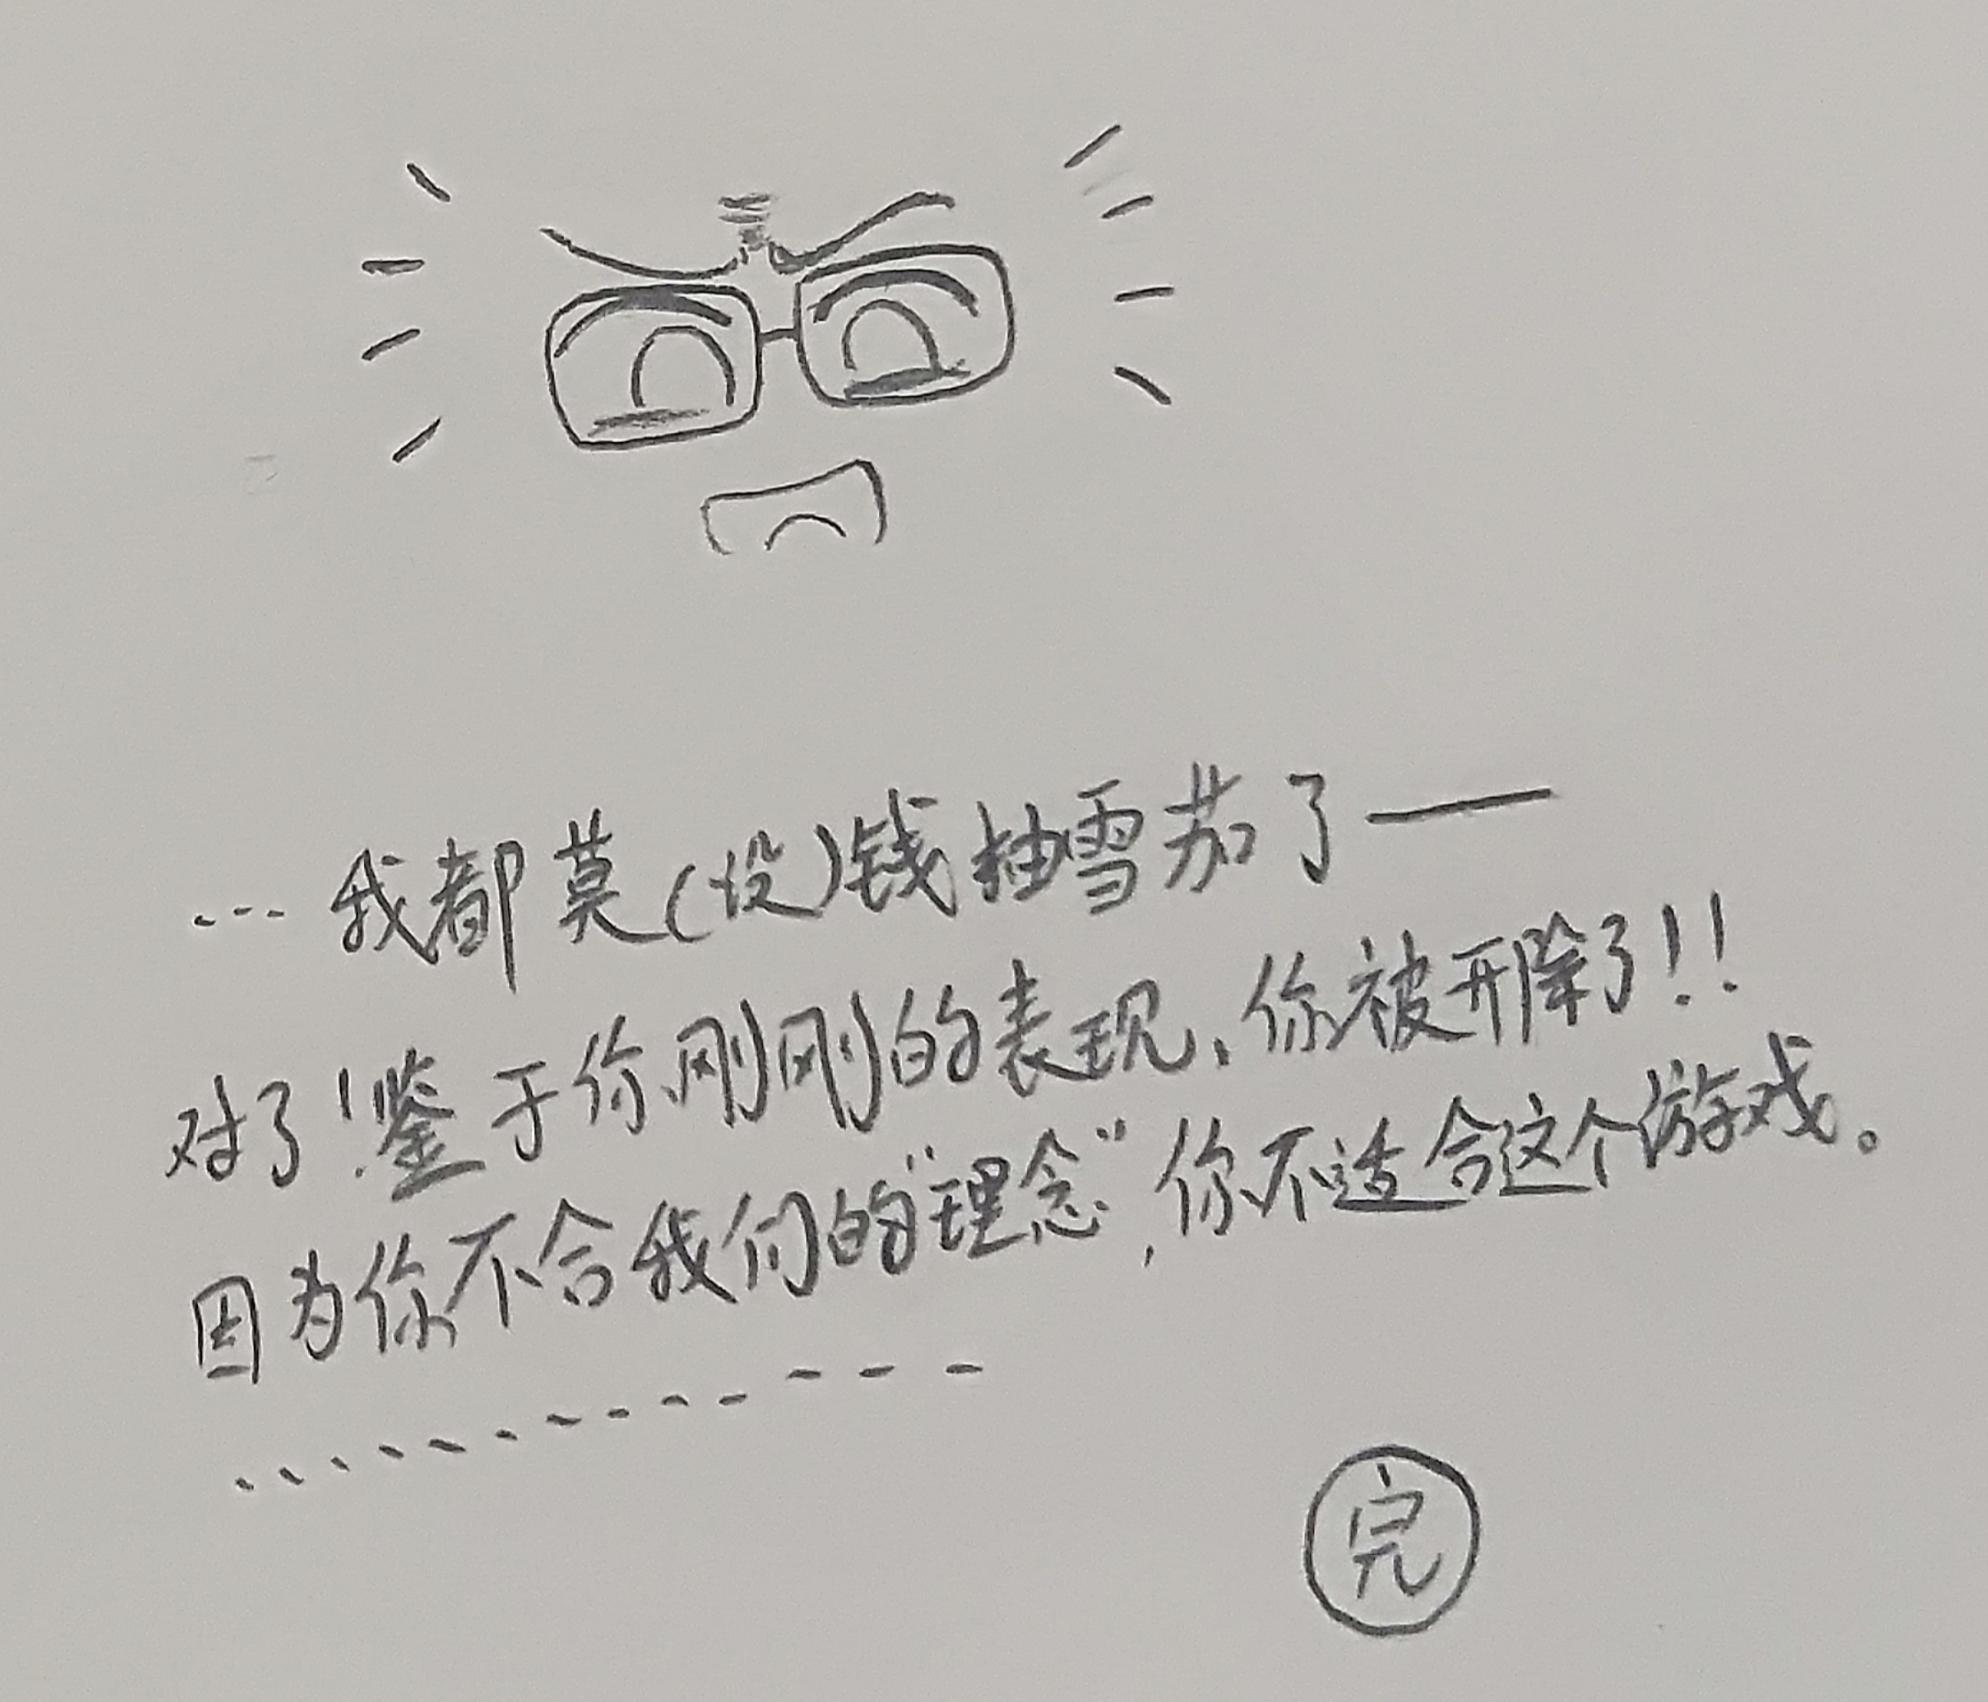 …我都莫(没)钱抽雪茄了——
对了!鉴于你刚刚的表现,你被开除了!!
因为你不合我们的"理念",你不适合这个游戏。
…………
完